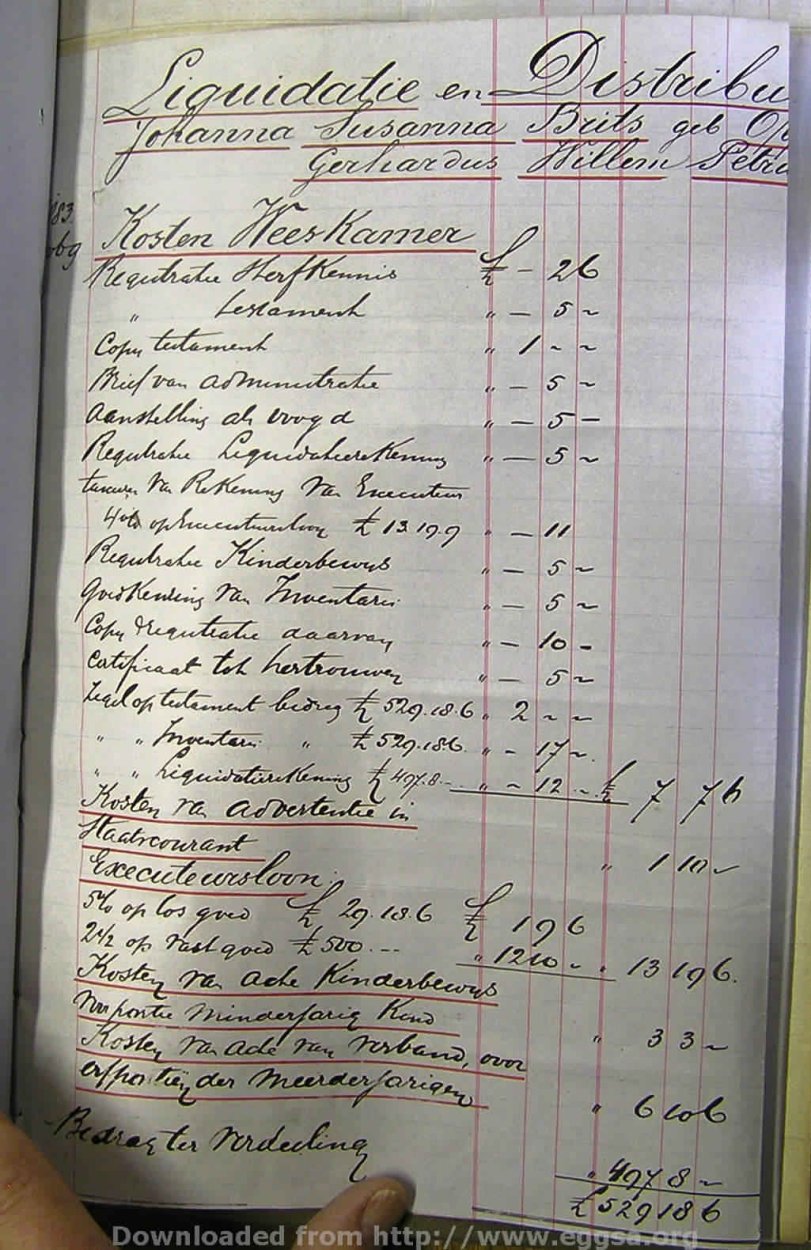 Liquidatie en Distribu
Johanna Susanna Brits geb Op
Gerhardus Willem Petru
183
Kosten Weeskamer
Registratie Sterfkennis £ - 2 6
" testament " - 5 ~
Copy testament " 1 ~ ~
Brief van administratie " - 5 ~
Aanstelling als voogd " - 5 -
Registratie Liquidatierekening " - 5 ~
taxeren Van Rekening Van Executeur
4% op Executeursloon £ 13.19.9 " - 11
Registratie Kinderbewys " - 5 ~
Goedkeuring Van Inventaris " - 5 ~
Copy & registratie daarvan " - 10 -
Certificaat tot hertrouwen " - 5 ~
Zegel op testament bedrag £ 529.18.6 " 2 ~ ~
" " Inventaris " £ 529.18.6 " - 17 ~
" " Liquidatierekening £ 497.8.- " ~ 12 ~ £ 7 7 6
Kosten van advertentie in
Staatscourant " 1 10 ~
Executeursloon
5% op los goed £ 29.18.6 £ 1 9 6
2½ op Vast goed £ 500.-- " 12 10 ~ " 13 19 6.
Kosten van acte Kinderbewys
Voor portie Minderjarig Kind " 3 3 ~
Kosten van acte van verband, voor
erfportien der Meerderjarigen " 6 10 6
Bedrag ter Verdeeling " 497 8 ~
£ 529 18 6
Downloaded from http://www.eggsa.org